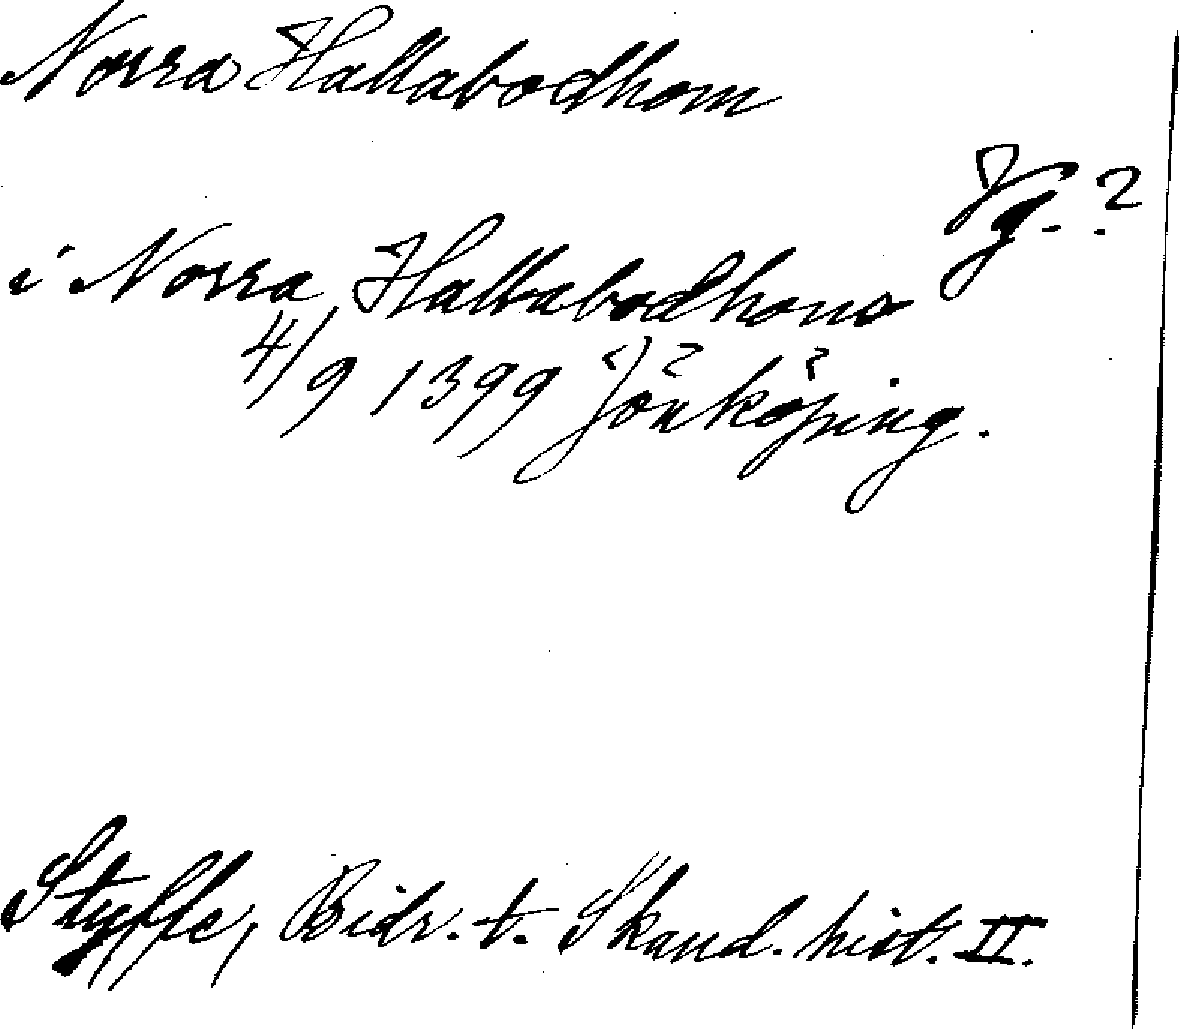 Norra Hallabodhom
Vg. ?
i Norra Hallabodhom
4/9 1399 Jönköping.
Styffe, Bidr. t. Skand. hist. II.